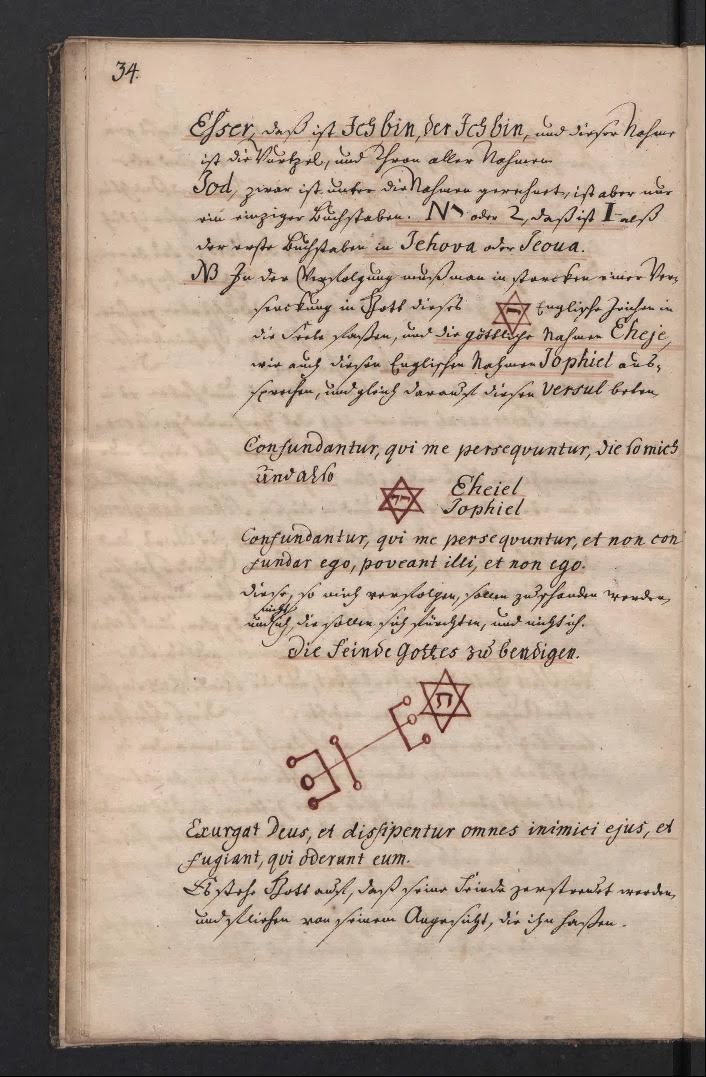 34.
Esser, daß ist Ich bin, der Ich bin, und dieser Nahme
ist die Wurtzel, und Thron aller Nahmen
Jod, zwar ist unter die Nahmen gerechnet, ist aber nur
ein einziger Buchstaben. N י oder 2, daß ist I alß
der erste Buchstaben in Jehova oder Jeoua.
NB In der Verfolgung muß man in starcken einer Ver-
senckung in Gott dieses י Englische Zeichen in
die Seele faßen, und die göttliche Nahmen Eheje,
wie auch diesen Englischen Nahmen Jophiel aus-
sprechen, und gleich darauf diesen Versul beten
Confundantur, qvi me perseqvuntur, die so mich
und also
Eheiel
Jophiel
Confundantur, qvi me perseqvuntur, et non con
fundar ego, poveant illi, et non ego.
diese, so mich verfolgen, sollen zu schanden werden,
und nicht ich, die sollen sich fürchten, und nicht ich.
Die Feinde Gottes zu bendigen.
ה
Exurgat Deus, et dissipentur omnes inimici ejus, et
fugiant, qvi oderunt eum.
Es stehe Gott auf, daß seine Feinde zerstreuet werden,
und fliehen von seinem Angesicht, die ihn haßen.